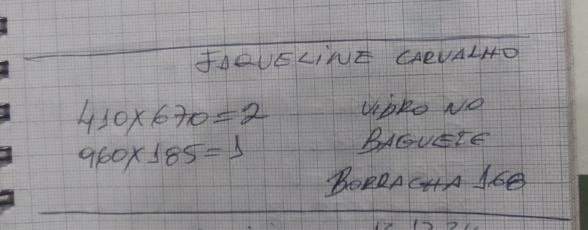 JAQUELINE CARVALHO
410x670=2 VIDRO NO
960x185=1 BAGUETE
BORRACHA 168